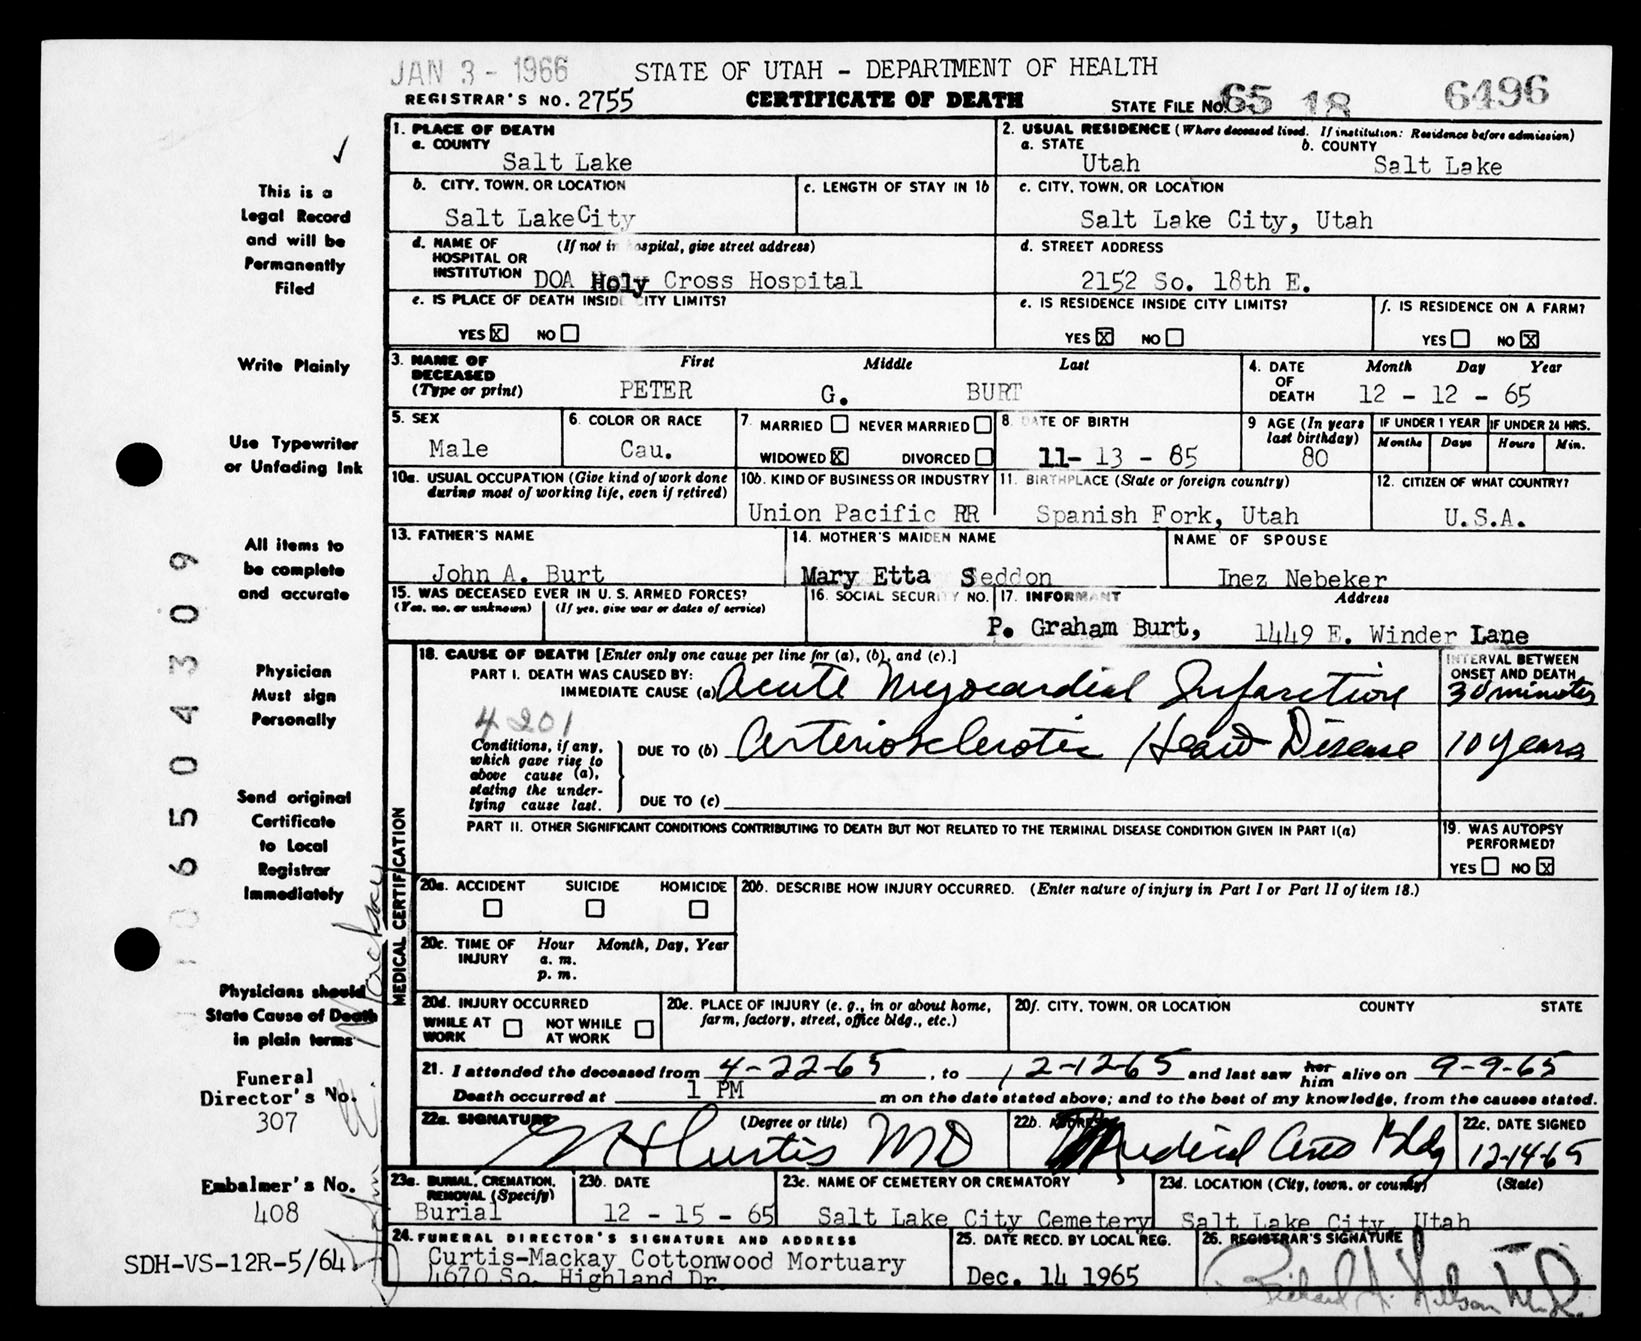 JAN 3 - 1966 STATE OF UTAH - DEPARTMENT OF HEALTH
REGISTRAR'S NO. 2755 CERTIFICATE OF DEATH STATE FILE NO. 65 18 6496
1. PLACE OF DEATH
a. COUNTY
Salt Lake
2. USUAL RESIDENCE (Where deceased lived. If institution: Residence before admission)
a. STATE b. COUNTY
Utah Salt Lake
b. CITY, TOWN, OR LOCATION
Salt Lake City
c. LENGTH OF STAY IN 1b
c. CITY, TOWN, OR LOCATION
Salt Lake City, Utah
d. NAME OF (If not in hospital, give street address)
HOSPITAL OR
INSTITUTION DOA Holy Cross Hospital
d. STREET ADDRESS
2152 So. 18th E.
e. IS PLACE OF DEATH INSIDE CITY LIMITS?
YES X NO
e. IS RESIDENCE INSIDE CITY LIMITS?
YES X NO
f. IS RESIDENCE ON A FARM?
YES NO X
3. NAME OF First Middle Last
DECEASED
(Type or print) PETER G. BURT
4. DATE Month Day Year
OF
DEATH 12 - 12 - 65
5. SEX
Male
6. COLOR OR RACE
Cau.
7. MARRIED NEVER MARRIED
WIDOWED X DIVORCED
8. DATE OF BIRTH
11- 13 - 85
9 AGE (In years
last birthday)
80
IF UNDER 1 YEAR IF UNDER 24 HRS.
Months Days Hours Min.
10a. USUAL OCCUPATION (Give kind of work done
during most of working life, even if retired)
10b. KIND OF BUSINESS OR INDUSTRY
Union Pacific RR
11. BIRTHPLACE (State or foreign country)
Spanish Fork, Utah
12. CITIZEN OF WHAT COUNTRY?
U.S.A.
13. FATHER'S NAME
John A. Burt
14. MOTHER'S MAIDEN NAME
Mary Etta Seddon
NAME OF SPOUSE
Inez Nebeker
15. WAS DECEASED EVER IN U. S. ARMED FORCES?
(Yes, no, or unknown) (If yes, give war or dates of service)
16. SOCIAL SECURITY NO.
17. INFORMANT Address
P. Graham Burt, 1449 E. Winder Lane
MEDICAL CERTIFICATION
18. CAUSE OF DEATH [Enter only one cause per line for (a), (b), and (c).]
PART I. DEATH WAS CAUSED BY:
IMMEDIATE CAUSE (a) Acute Myocardial Infarction
4201
Conditions, if any,
which gave rise to
above cause (a),
stating the under-
lying cause last.
DUE TO (b) Arteriosclerotic Heart Disease
DUE TO (c)
INTERVAL BETWEEN
ONSET AND DEATH
30 minutes
10 years
PART II. OTHER SIGNIFICANT CONDITIONS CONTRIBUTING TO DEATH BUT NOT RELATED TO THE TERMINAL DISEASE CONDITION GIVEN IN PART I(a)
19. WAS AUTOPSY
PERFORMED?
YES NO X
20a. ACCIDENT SUICIDE HOMICIDE
20b. DESCRIBE HOW INJURY OCCURRED. (Enter nature of injury in Part I or Part II of item 18.)
20c. TIME OF Hour Month, Day, Year
INJURY a. m.
p. m.
20d. INJURY OCCURRED
WHILE AT NOT WHILE
WORK AT WORK
20e. PLACE OF INJURY (e. g., in or about home,
farm, factory, street, office bldg., etc.)
20f. CITY, TOWN, OR LOCATION COUNTY STATE
21. I attended the deceased from 4-22-65, to 12-12-65 and last saw her him alive on 9-9-65
Death occurred at 1 PM m on the date stated above; and to the best of my knowledge, from the causes stated.
22a. SIGNATURE (Degree or title)
Curtis MD
22b. ADDRESS
Medical Arts Bldg
22c. DATE SIGNED
12-14-65
23a. BURIAL, CREMATION,
REMOVAL (Specify)
Burial
23b. DATE
12 - 15 - 65
23c. NAME OF CEMETERY OR CREMATORY
Salt Lake City Cemetery
23d. LOCATION (City, town, or county) (State)
Salt Lake City, Utah
24. FUNERAL DIRECTOR'S SIGNATURE AND ADDRESS
Curtis-Mackay Cottonwood Mortuary
4670 So. Highland Dr.
25. DATE RECD. BY LOCAL REG.
Dec. 14 1965
26. REGISTRAR'S SIGNATURE
Richard A. Nelson M.D.
This is a
Legal Record
and will be
Permanently
Filed
Write Plainly
Use Typewriter
or Unfading Ink
All items to
be complete
and accurate
Physician
Must sign
Personally
Send original
Certificate
to Local
Registrar
Immediately
Physicians should
State Cause of Death
in plain terms
Funeral
Director's No.
307
Embalmer's No.
408
SDH-VS-12R-5/64
6504309
John Mackay